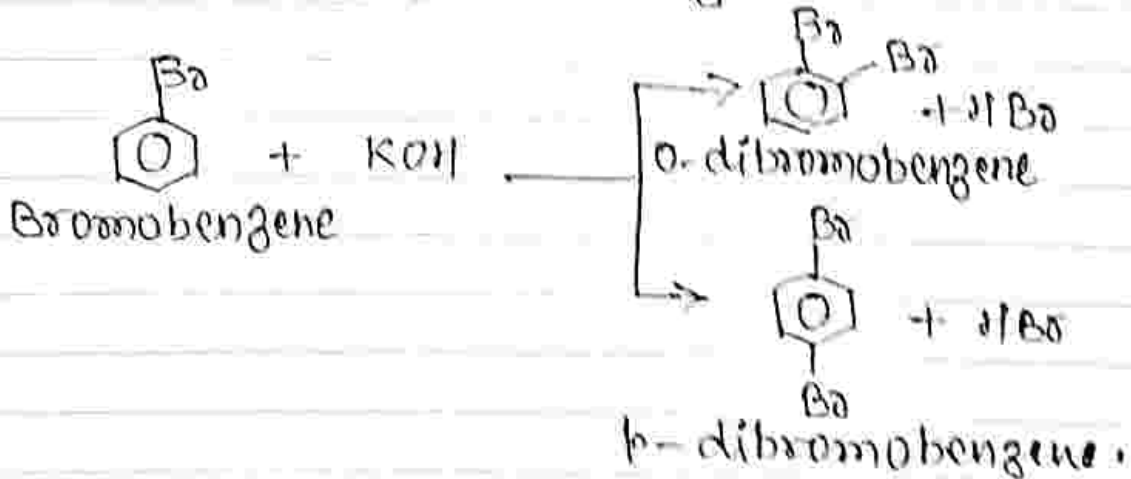 Br
+ KOH
Bromobenzene
Br
Br
+ HBr
o. dibromobenzene
Br
+ HBr
Br
p- dibromobenzene.